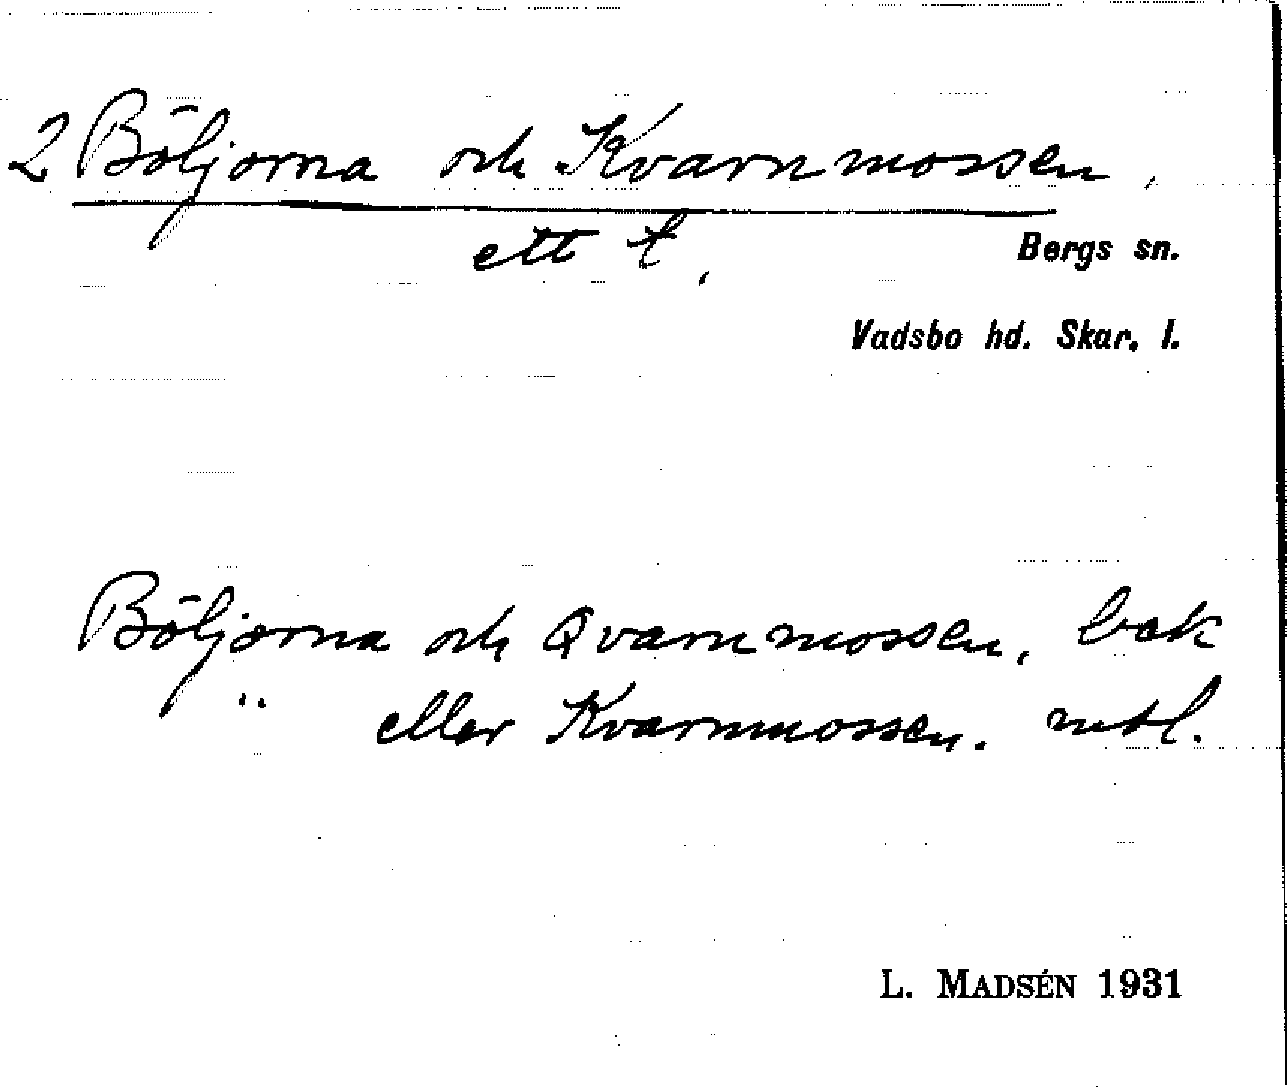 2 Böljorna och Kvarnmossen,
ett t.
Bergs sn.
Vadsbo hd. Skar. l.
Böljorna och Qvarnmossen, bok
" eller Kvarnmossen. mtl.
L. MADSÉN 1931